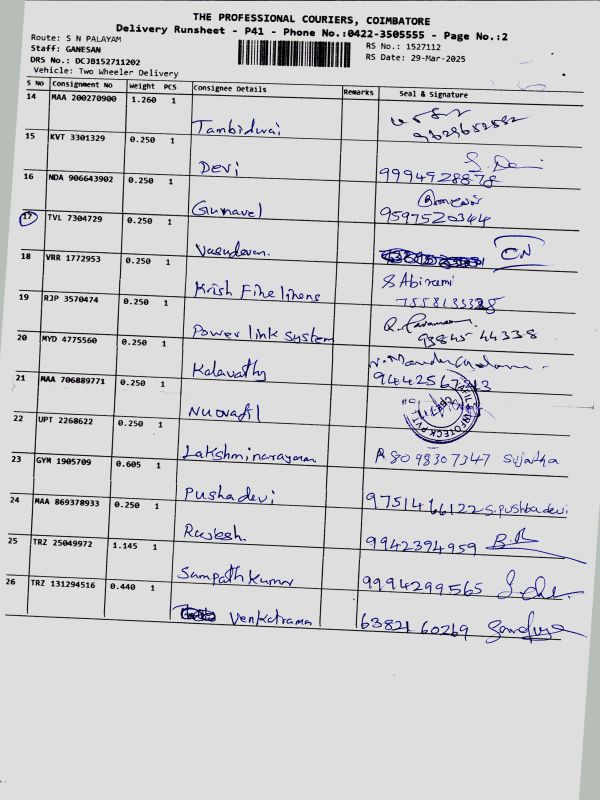 THE PROFESSIONAL COURIERS, COIMBATORE
Delivery Runsheet - P41 - Phone No.:0422-3505555 - Page No.:2
Route: S N PALAYAM
RS No.: 1527112
Staff: GANESAN
RS Date: 29-Mar-2025
DRS No.: DCJB152711202
Vehicle: Two Wheeler Delivery
S No Consignment No Weight PCS Consignee Details Remarks Seal & Signature
14 MAA 200270900 1.260 1
Tambidurai 9629652582
15 KVT 3301329 0.250 1
Devi 9994928878
16 NDA 906643902 0.250 1
Gunavel 9597520344
17 TVL 7304729 0.250 1
Vasudevan. CN
18 VRR 1772953 0.250 1
Krish Fine linens S Abirami
7558133328
19 RJP 3570474 0.250 1
Power link System 93845 44338
20 MYD 4775560 0.250 1
Kalavathy
21 MAA 706889771 0.250 1
Nuovafil
22 UPT 2268622 0.250 1
Lakshminarayanan 8098307347 Sujatha
23 GYM 1905709 0.605 1
Pushadevi 9751466122 S.pushbadevi
24 MAA 869378933 0.250 1
Rajesh. 9942394959 B.R
25 TRZ 25049972 1.145 1
Sampath Kumar 9994299565
26 TRZ 131294516 0.440 1
Venkatrama 63821 60269